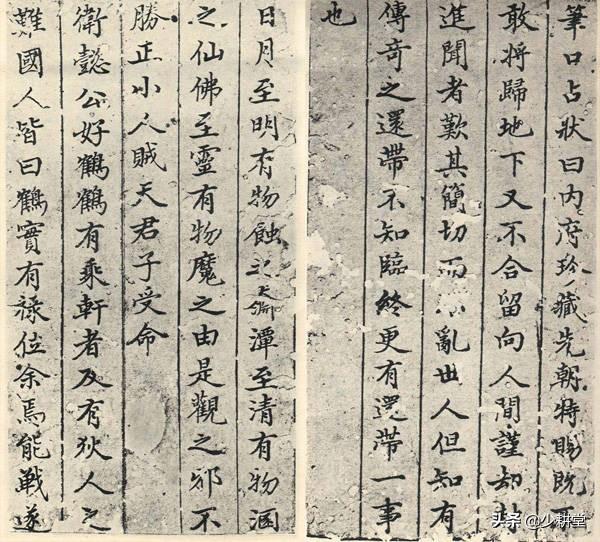 筆口占狀曰内府珍藏先朝特賜既不
敢將歸地下又不合留向人間謹却封
進聞者歎其簡切而亂世人但知有
傳奇之還帶不知臨終更有還帶一事
也
日月至明有物蝕之潭至清有物溷
之仙佛至靈有物魔之由是觀之邪不
勝正小人賊天君子受命
衛懿公好鶴鶴有乘軒者及有狄人之
難國人皆曰鶴實有祿位余焉能戰遂
头条 @少耕堂